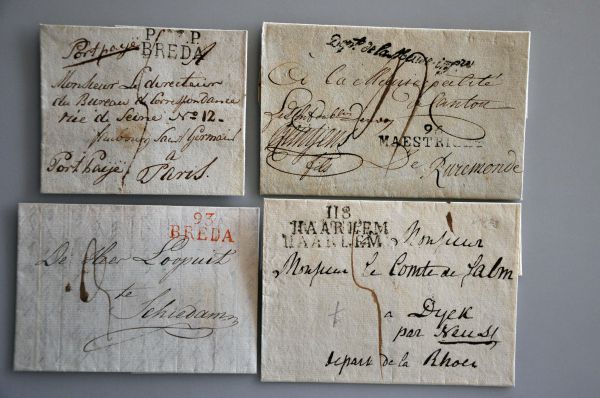 P. P.
BREDA
Port payé
Monsieur Le directeur
du Bureau de Correspondance
rue de Seine No 12.
faubourg Saint Germain
à
Port Payé Paris.
de la Meuse
A la Municipalité
de Canton
fils
94
MAESTRICHT
Ruremonde
93
BREDA
De Heer
te
Schiedam
118
HAARLEM
HAARLEM
Monsieur
Monsieur Le Comte de Salm
a
Dyck
par Neuss
depart de la Rhoer